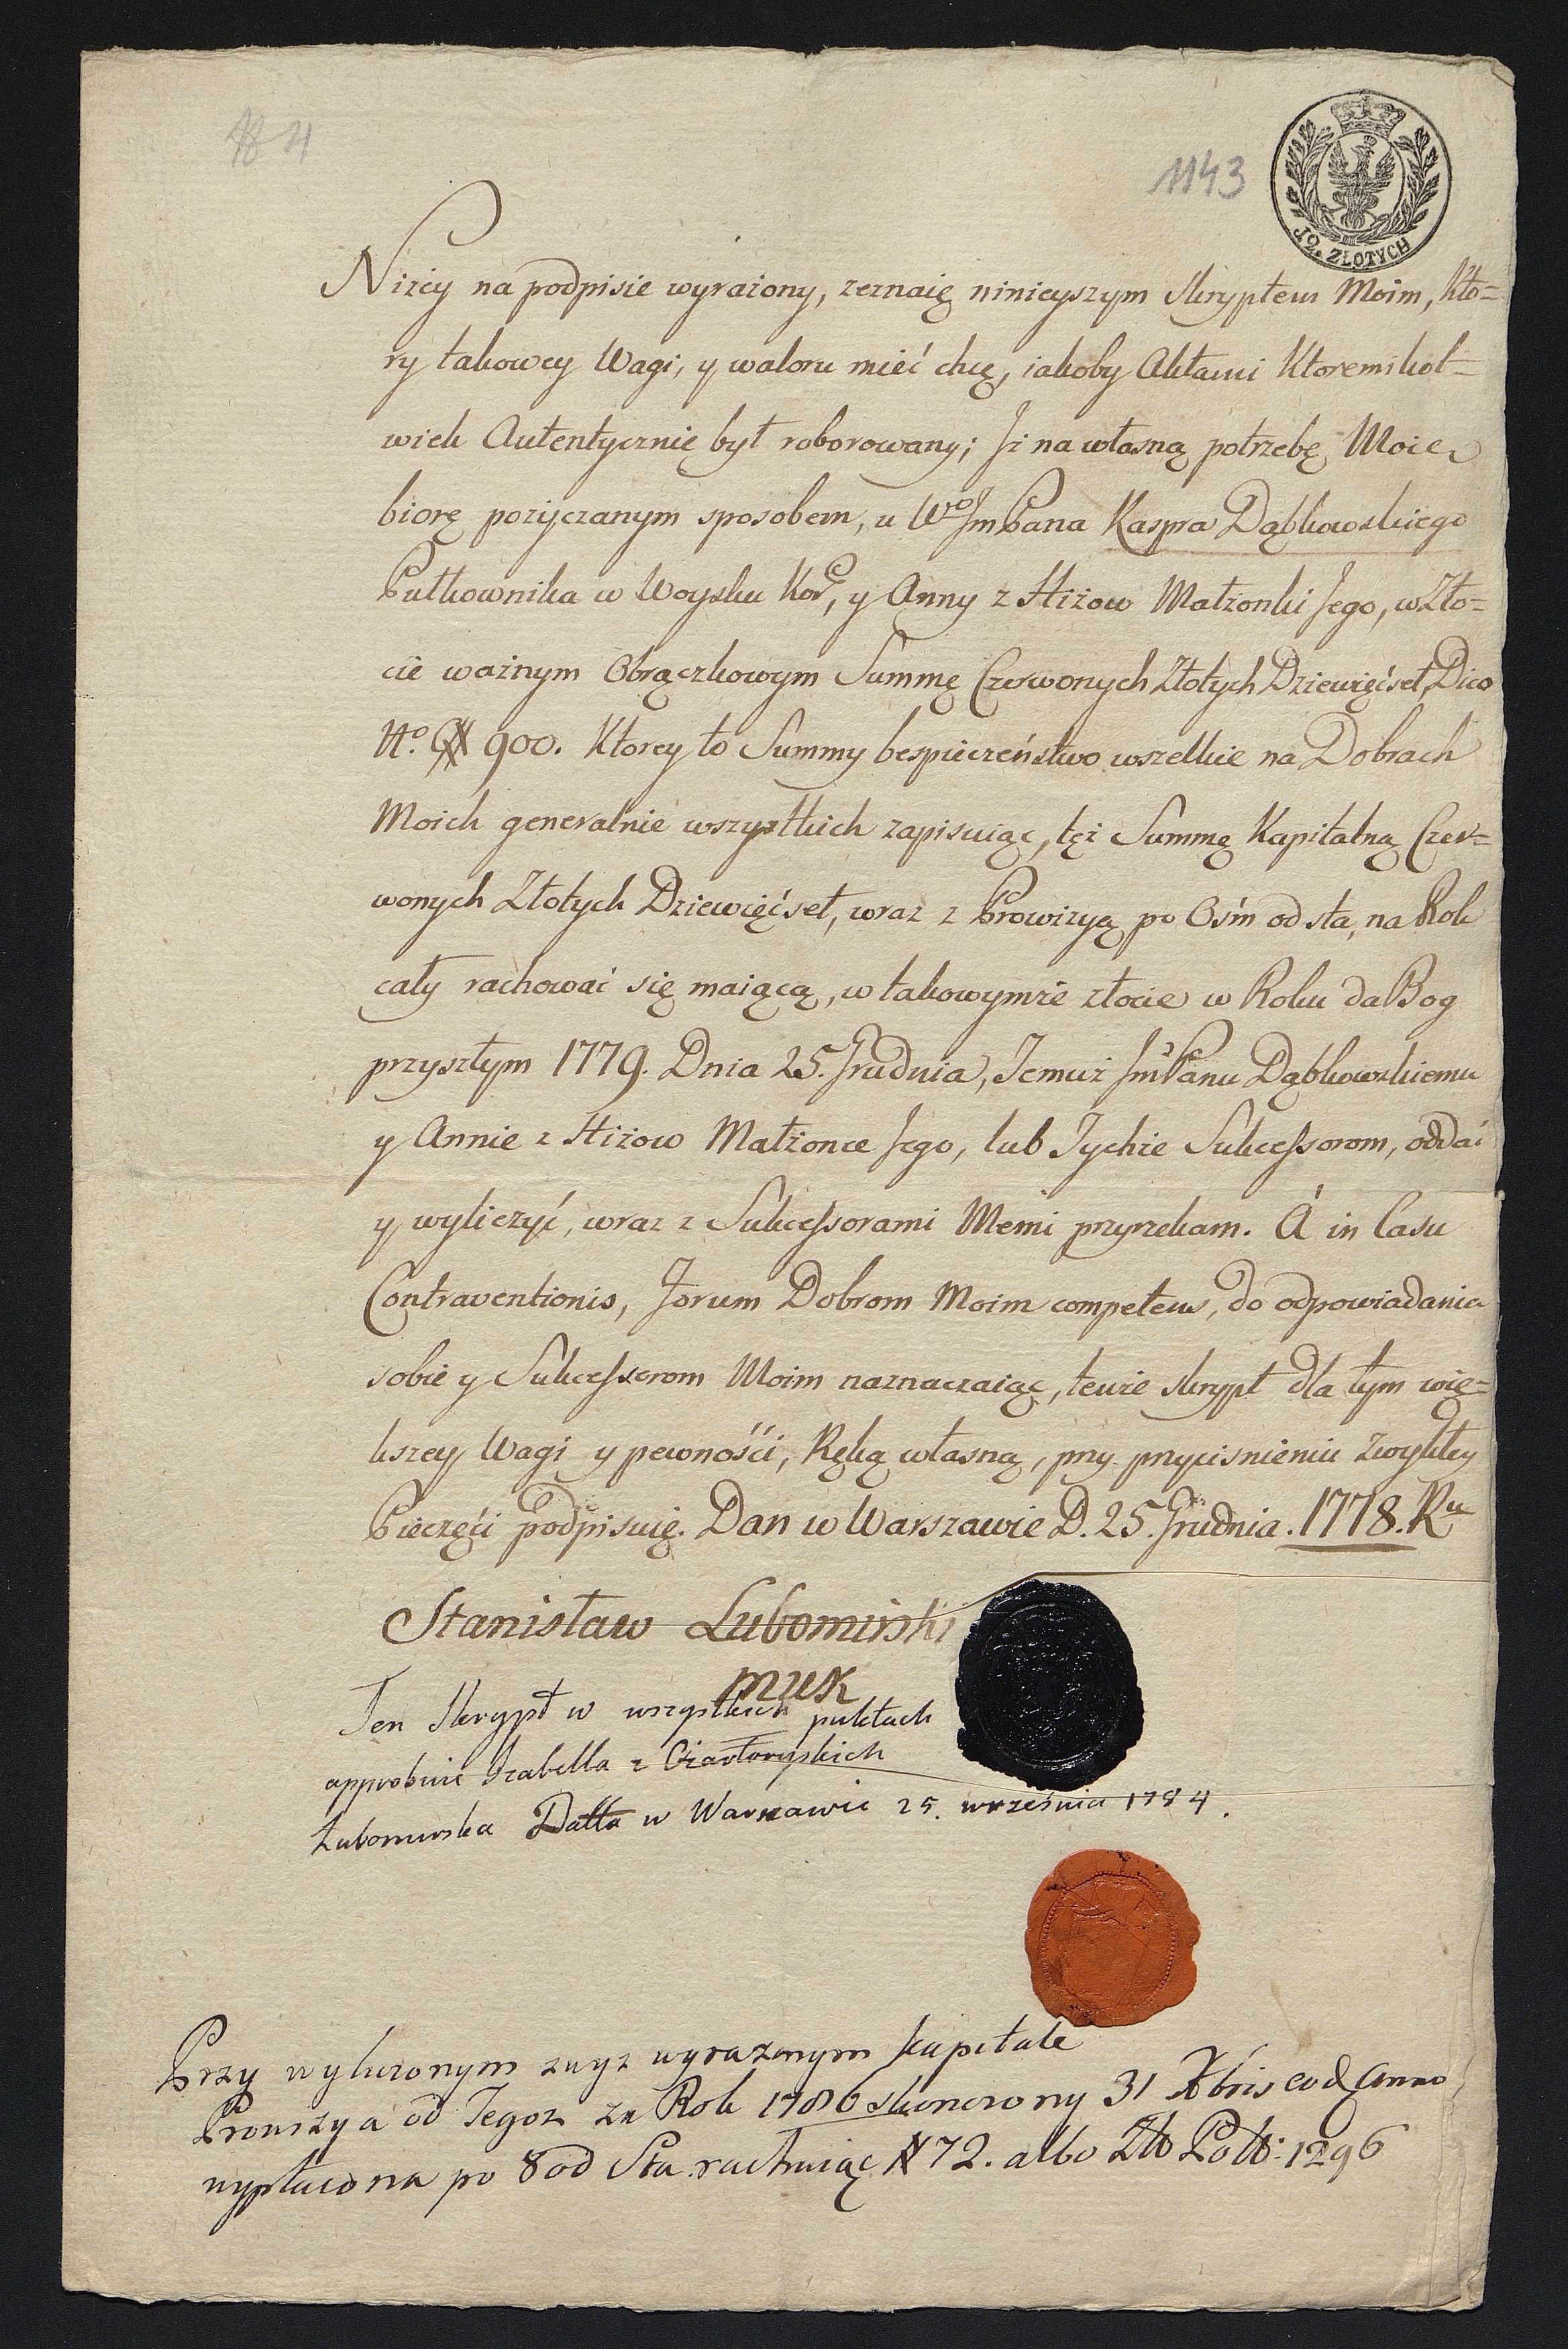 1143
12. ZŁOTYCH
Niżey na podpisie wyrażony, zeznaię ninieyszym skryptem Moim, kto=
ry takowey Wagi, y waloru mieć chcę, iakoby Aktami Ktoremikol=
wiek Autentycznie był roborowany; Jż na własną potrzebę Moię
biorę pożyczanym sposobem, u Wo JmPana Kaspra Dąbkowskiego
Pułkownika w Woysku Kor, y Anny z Hiżow Małżonki Jego, w Zło=
cie ważnym Obrączkowym Summę Czerwonych Złotych Dziewięćset, Dico
No. 900. Ktorey to Summy bespieczeństwo wszelkie na Dobrach
Moich generalnie wszystkich zapisuiąc, tęż Summę Kapitalną Czer=
wonych Złotych Dziewięćset, wraz z Prowizyą po Ośm od sta, na Rok
cały rachować się maiącą, w takowymże złocie w Roku da Bog
przyszłym 1779. Dnia 25. Grudnia, Temuż JmPanu Dąbkowskiemu
y Annie z Hiżow Małżonce Jego, lub Tychże Sukcessorom, oddać
y wyliczyć, wraz z Sukcessorami Memi przyrzekam. Á in Casu
Contraventionis, Forum Dobrom Moim competens, do odpowiadania
sobie y Sukcessorom Moim naznaczaiąc, tenże skrypt dla tym wię=
kszey Wagi y pewnośći, Ręką własną, przy przyciśnieniu zwykłey
Pieczęći podpisuię. Dan w Warszawie D. 25. Grudnia. 1778. Ru
Stanisław Lubomirski
mwk
Ten Skrypt w wszystkich puktach
approbuie Izabella z Czartoryskich
Lubomirska Datta w Warszawie 25. września 1784.
Przy wyliczonym zwyż wyrażonym kapitale
Prowizya od Tegoż za Rok 1786 skonczony 31 Xbris eod Anno
wypłacona po 8 od Sta rachuiąc # 72. albo Zło Pol: 1296